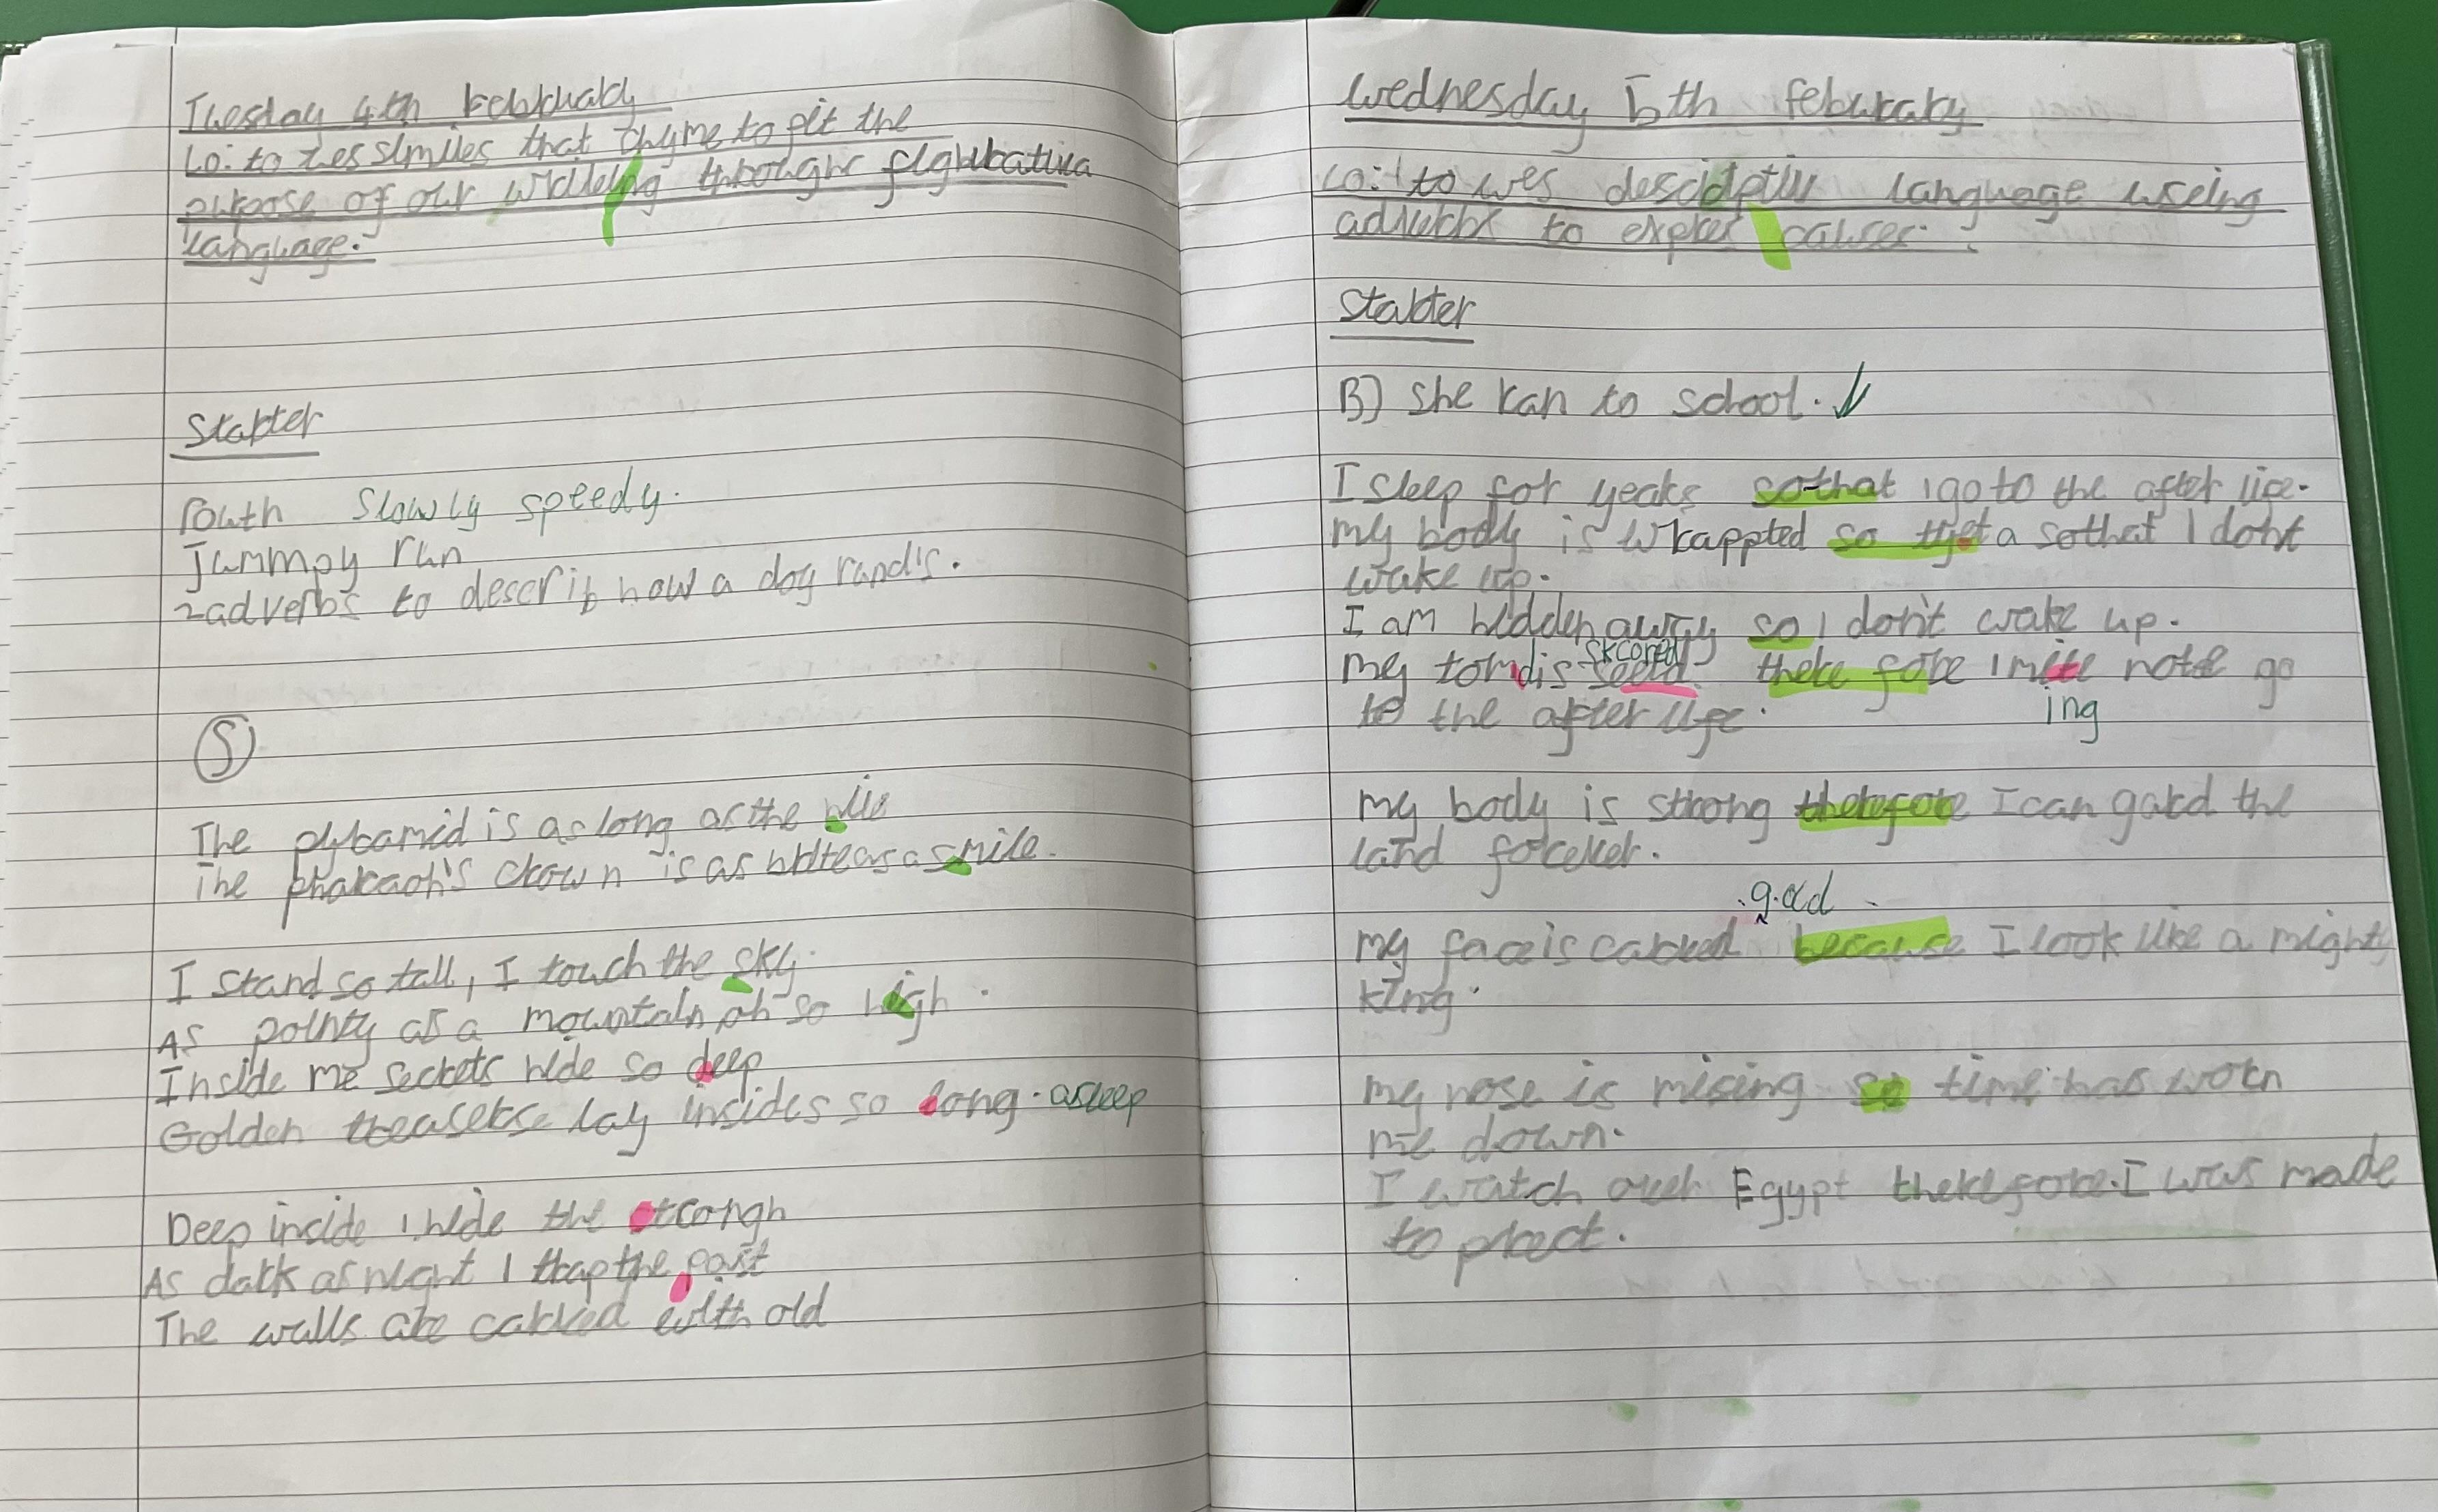 Tuesday 4th February
Lo: to ues similes that rhyme to fit the
purpose of our writeing throught
language.
Starter
Slowly speedy.
Jummpy run
2 adverbs to describ how a dog rund's.
S
The pyramid is as long as the nile
The pharaoh's crown is as as a smile.
I stand so tall, I touch the sky.
As pointy as a mountain oh so high.
Inside me secrets hide so deep
Golden lay insides so long. asleep
Deep inside I hide the
As dark as night I trap the past
The walls are carved with old
Wednesday 5th Feburary
Lo: to ues language useing
to causes.
Starter
B) She ran to school.
I sleep for years so that I go to the after life.
my body is wrappted so that a so that I dont
wake up.
I am hidden away so I don't wake up.
my tomd is there fore I mite note go
to the after life.
ing
my body is strong therefore I can gard the
land forever.
my face is carved because I look like a might
king.
my nose is mising so time has worn
me down.
I watch over Egypt therefore. I was made
to prect.